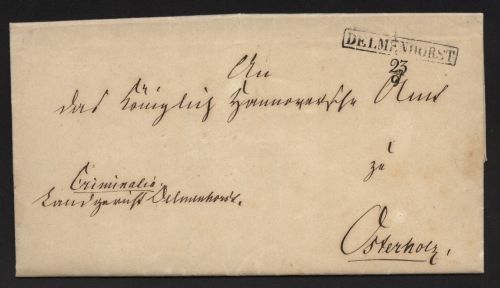 DELMENHORST
23
9
An
das Königlich Hannoversche Amt
zu
Osterholz.
Criminalia.
Landgericht Delmenhorst.